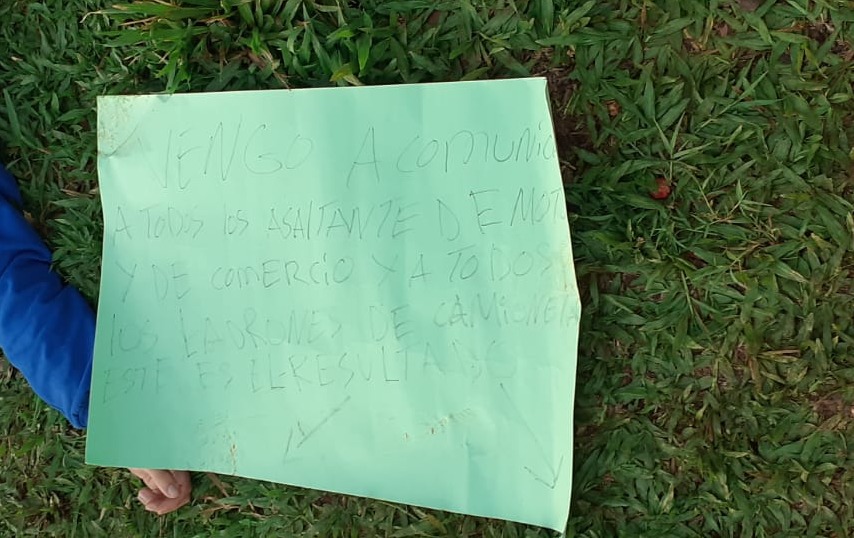 VENGO A COMUNIC
A TODOS LOS ASALTANTE DE MOTO
Y DE COMERCIO Y A TODOS
LOS LADRONES DE CAMIONETA
ESTE ES EL RESULTADO